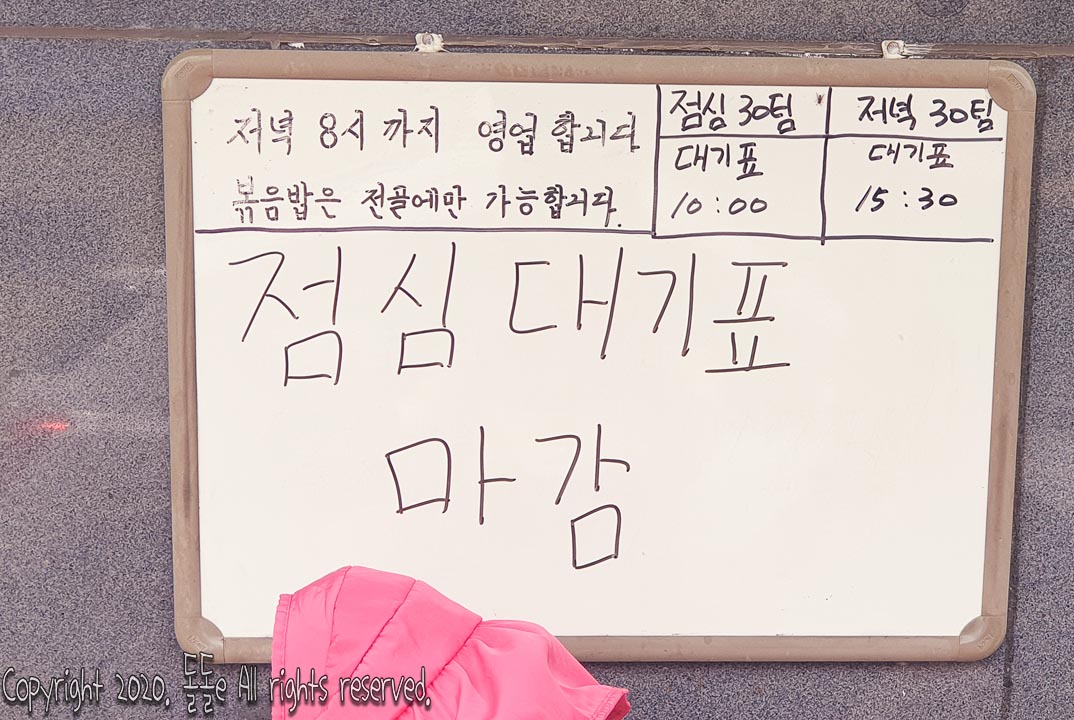 저녁 8시 까지 영업 합니다
볶음밥은 전골에만 가능합니다.
점심 30팀
대기표
10:00
저녁 30팀
대기표
15:30
점심 대기표
마감
Copyright 2020. 돌돌e All rights reserved.